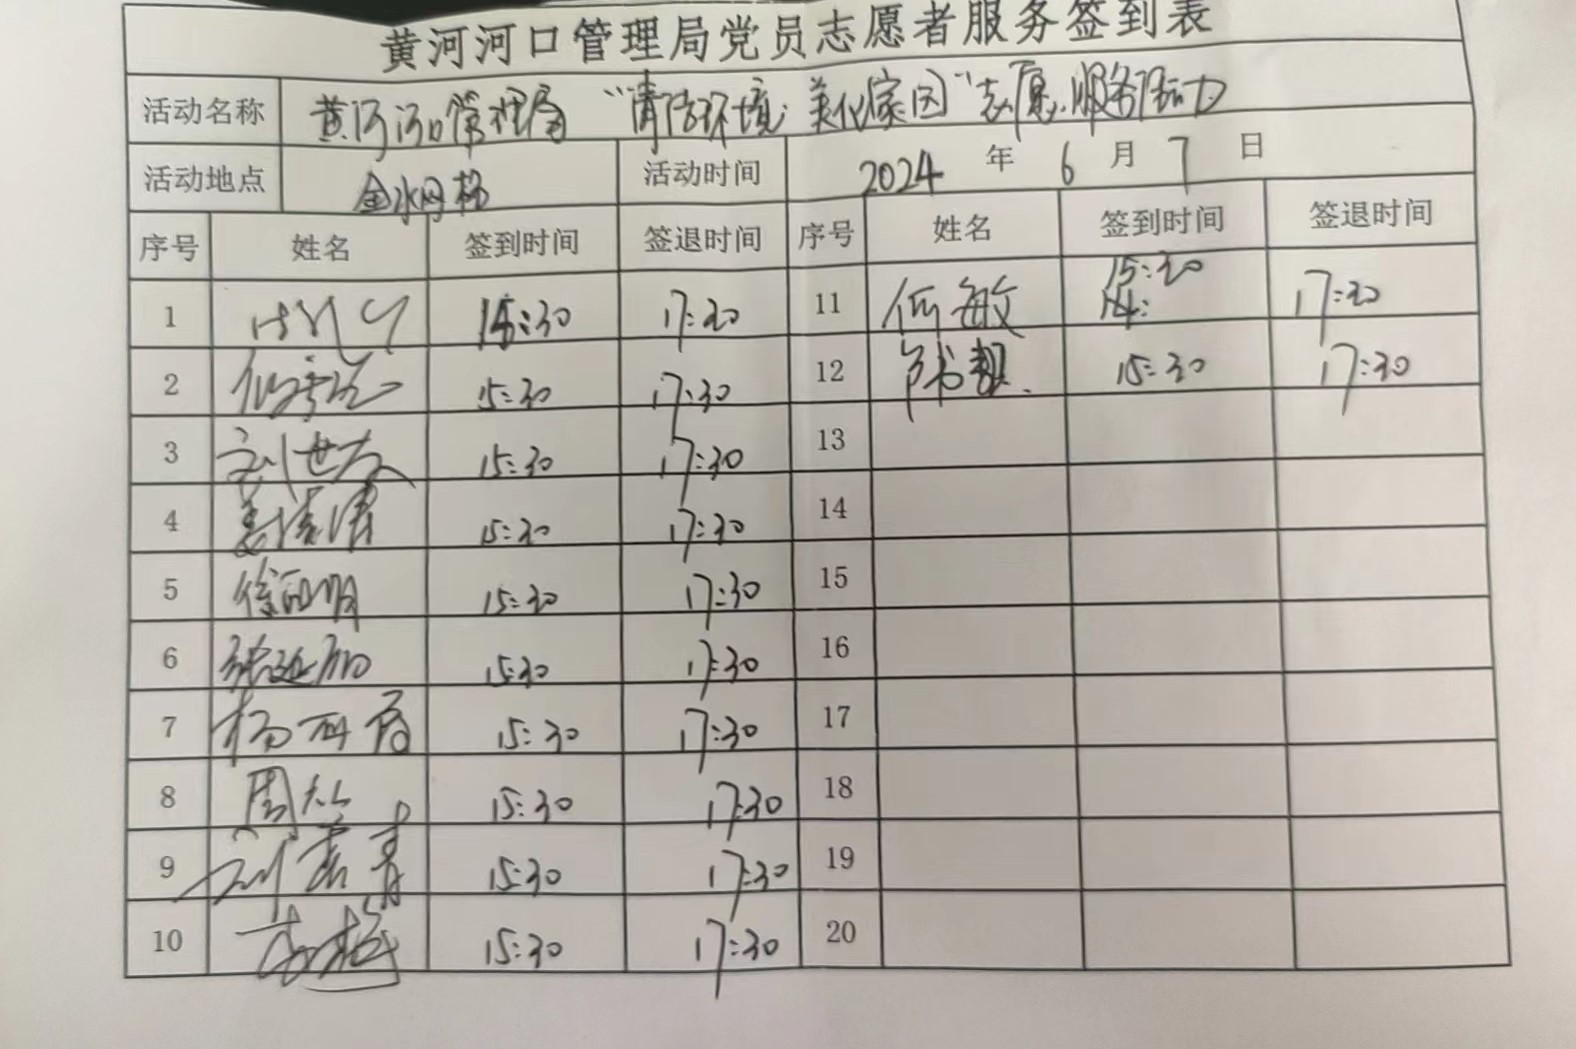 黄河河口管理局党员志愿者服务签到表
活动名称 黄河河口管理局 “清洁环境 美化家园”志愿服务活动
活动地点 金水网格 活动时间 2024 年 6 月 7 日
序号 姓名 签到时间 签退时间 序号 姓名 签到时间 签退时间
1 15:30 17:30 11 任敏 15:30 17:30
2 15:30 17:30 12 15:30 17:30
3 刘世友 15:30 17:30 13
4 15:30 17:30 14
5 15:30 17:30 15
6 15:30 17:30 16
7 15:30 17:30 17
8 15:30 17:30 18
9 15:30 17:30 19
10 15:30 17:30 20